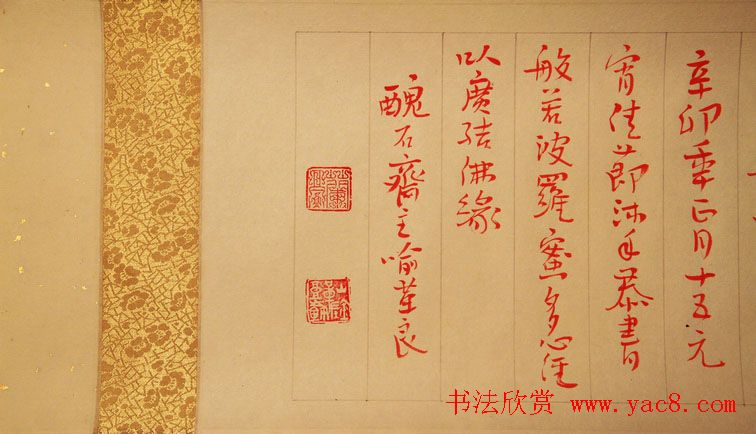 辛卯年正月十五元
宵佳节沐手恭書
般若波羅蜜多心经
以廣结佛緣
醜石齋主喻革良
书法欣赏 www.yac8.com